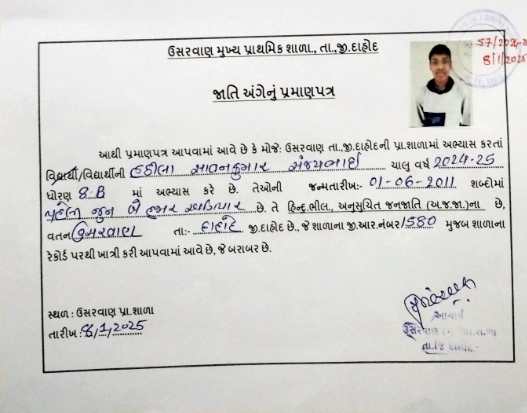 ઉસરવાણ મુખ્ય પ્રાથમિક શાળા., તા.,જી.દાહોદ
57/2024-2
8/1/2025
જાતિ અંગેનું પ્રમાણપત્ર
આથી પ્રમાણપત્ર આપવામાં આવે છે કે મોજે: ઉસરવાણ તા.,જી.દાહોદની પ્રા.શાળામાં અભ્યાસ કરતાં
વિદ્યાર્થી/વિદ્યાર્થીની હઠીલા સાવનકુમાર સંજયભાઈ ચાલુ વર્ષ 2024-25
ધોરણ 8-B માં અભ્યાસ કરે છે. તેઓની જન્મતારીખ:- 01-06-2011 શબ્દોમાં
પહેલી જુન બે હજાર અગિયાર છે. તે હિન્દુ ભીલ., અનુસુચિત જનજાતિ (અ.જ.જા.)ના છે,
વતન ઉસરવાણ તા:- દાહોદ જી.દાહોદ છે., જે શાળાના જી.આર.નંબર 1580 મુજબ શાળાના
રેકોર્ડ પરથી ખાત્રી કરી આપવામાં આવે છે, જે બરાબર છે.
સ્થળ : ઉસરવાણ પ્રા.શાળા
તારીખ : 8/1/2025
આચાર્ય